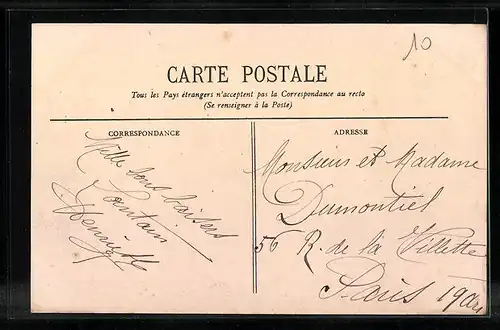 10
CARTE POSTALE
Tous les Pays étrangers n'acceptent pas la Correspondance au recto
(Se renseigner à la Poste)
CORRESPONDANCE
Mille bons baisers
Henriette
ADRESSE
Monsieur et Madame
Dumontiel
56 R. de la Villette
Paris